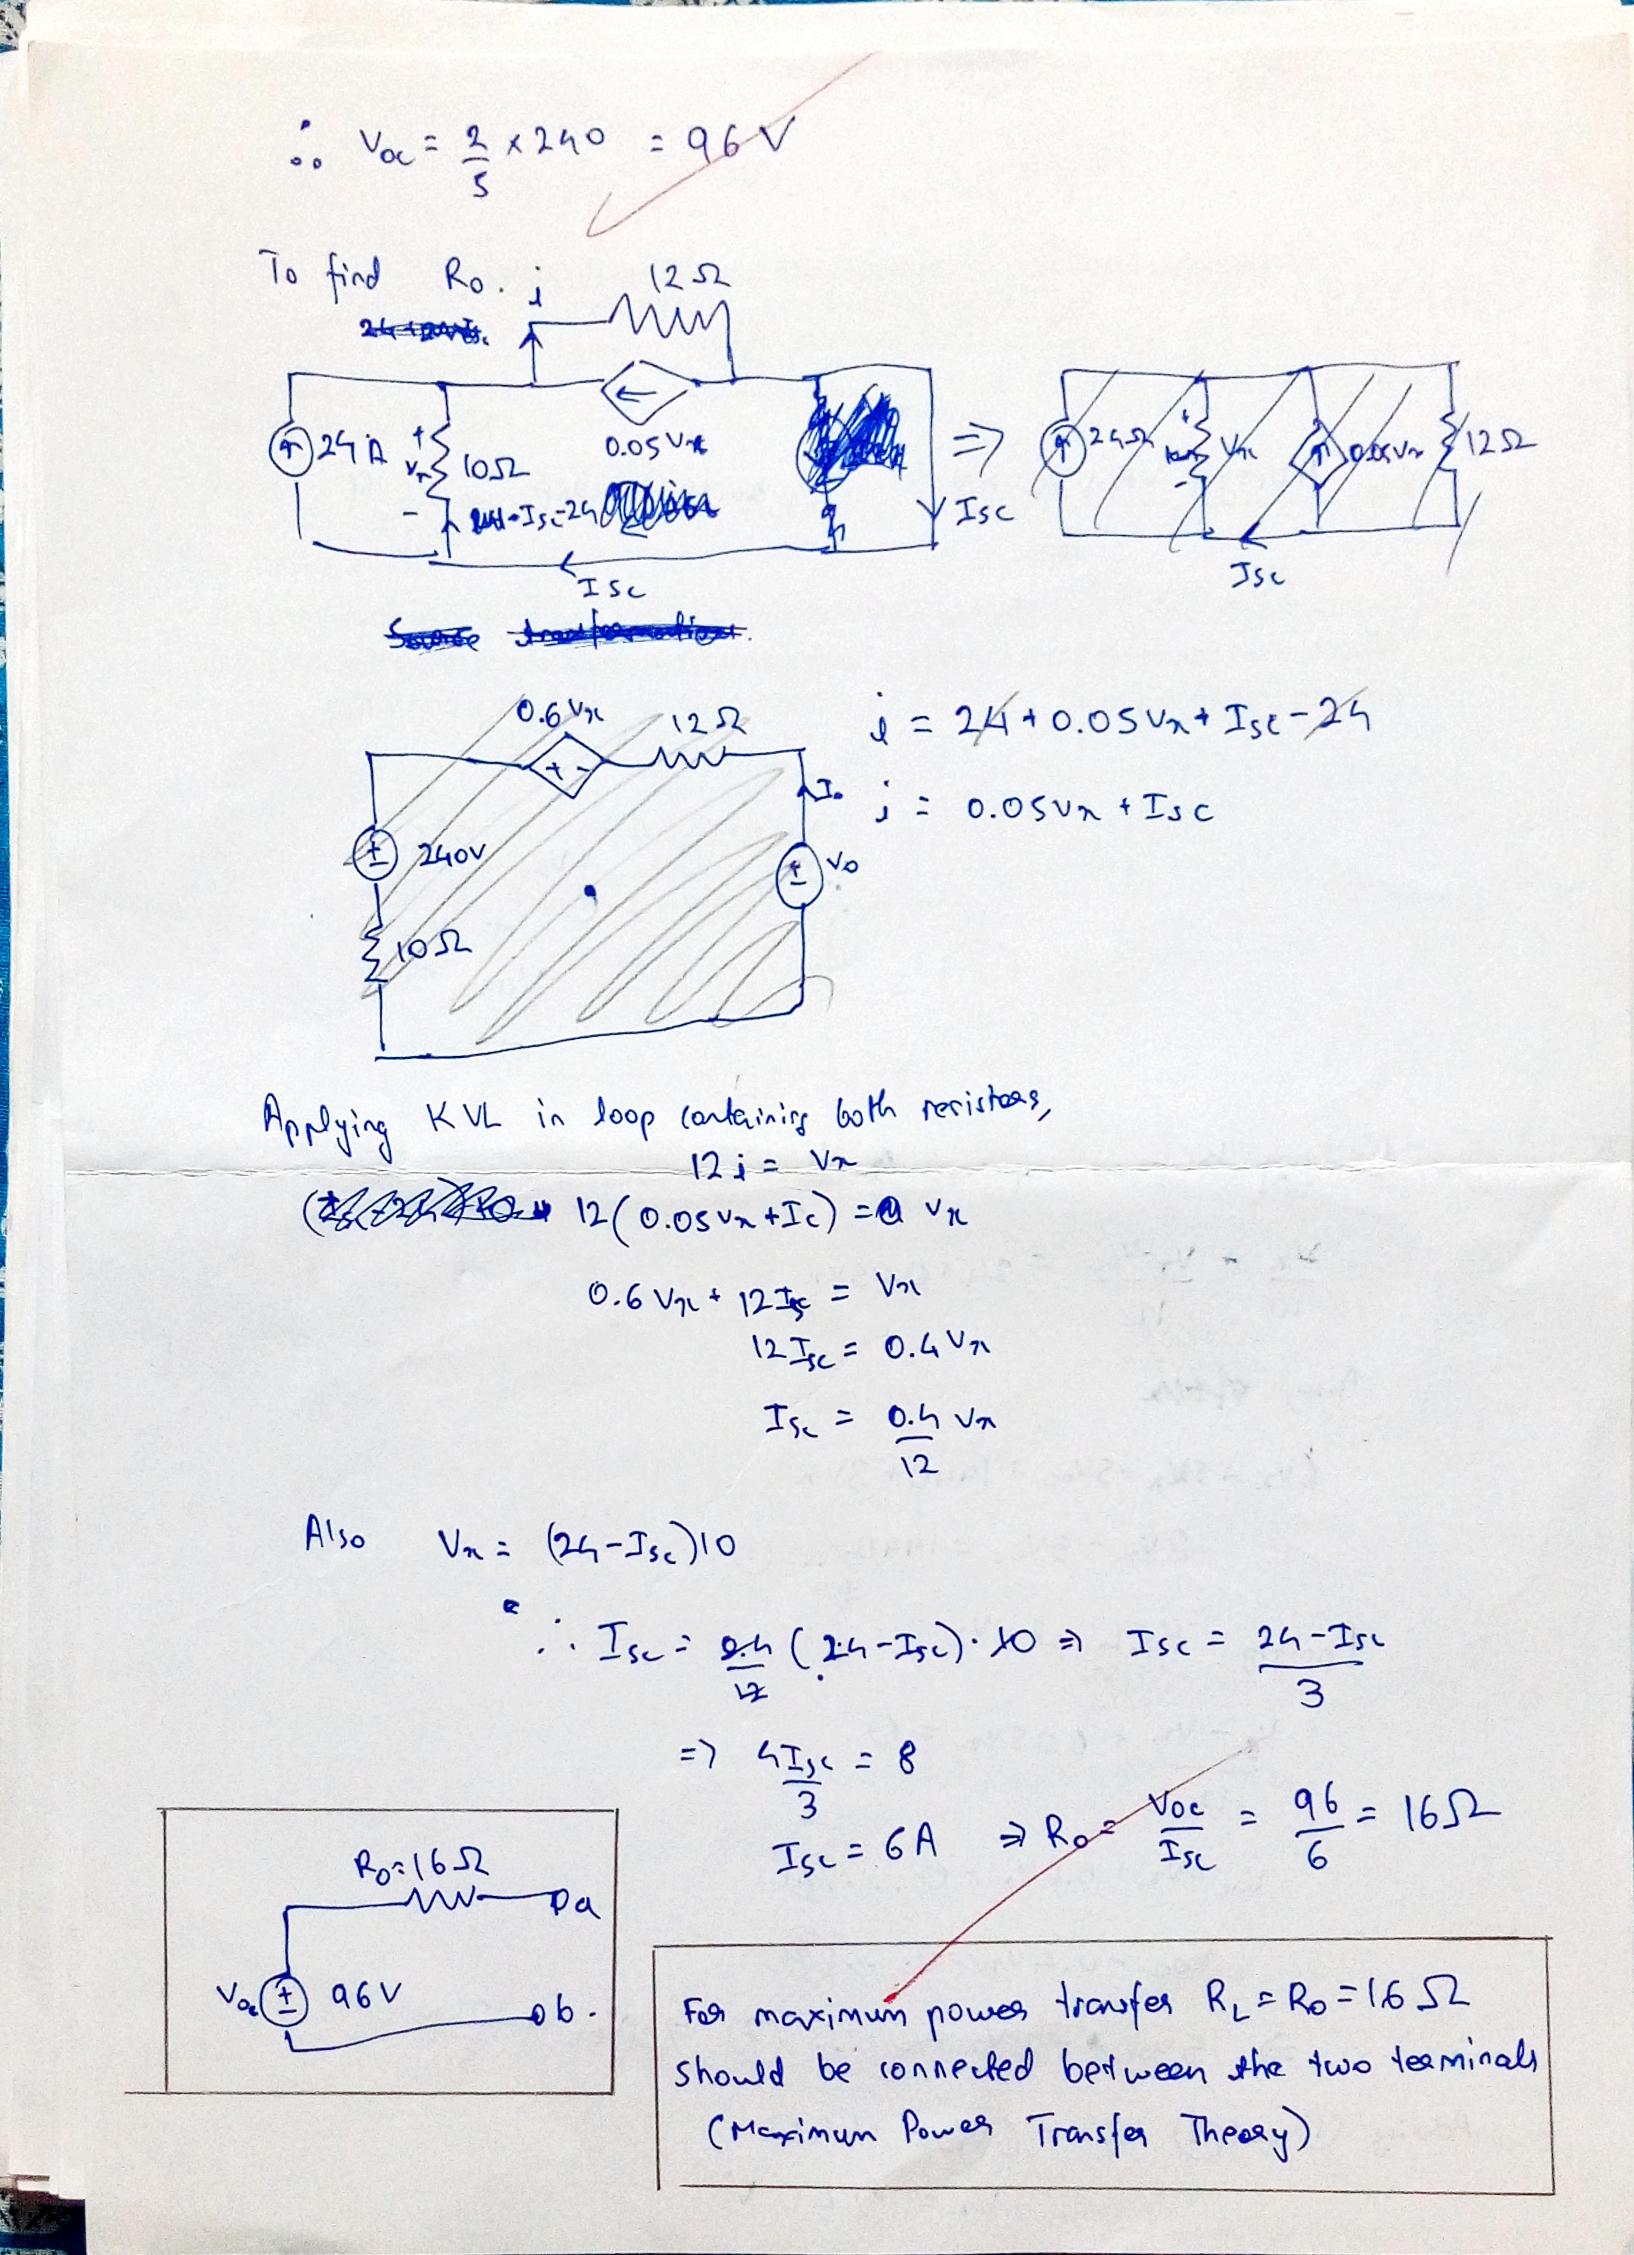 ∴ Voc = 2/5 × 240 = 96 V
To find Ro.
i 12Ω
24 A
+ Vx - 10Ω
0.05 Vx
Isc-24
Isc
Isc
⇒
24Ω
+ Vx -
0.05Vx
12Ω
Isc
Source transformation.
0.6 Vx 12Ω
+ -
Io
240V
Vo
10Ω
i = 24 + 0.05 Vx + Isc - 24
i = 0.05Vx + Isc
Applying KVL in loop containing both resistors,
12 i = Vx
12(0.05 Vx + Ic) = Vx
0.6 Vx + 12 Isc = Vx
12 Isc = 0.4 Vx
Isc = 0.4/12 Vx
Also Vx = (24-Isc)10
∴ Isc = 0.4/12 (24-Isc)·10 ⇒ Isc = 24-Isc/3
⇒ 4Isc/3 = 8
Isc = 6A ⇒ Ro = Voc/Isc = 96/6 = 16Ω
Ro=16Ω
a
Voc 96V
b.
For maximum power transfer RL = Ro = 16Ω
should be connected between the two terminals
(Maximum Power Transfer Theory)